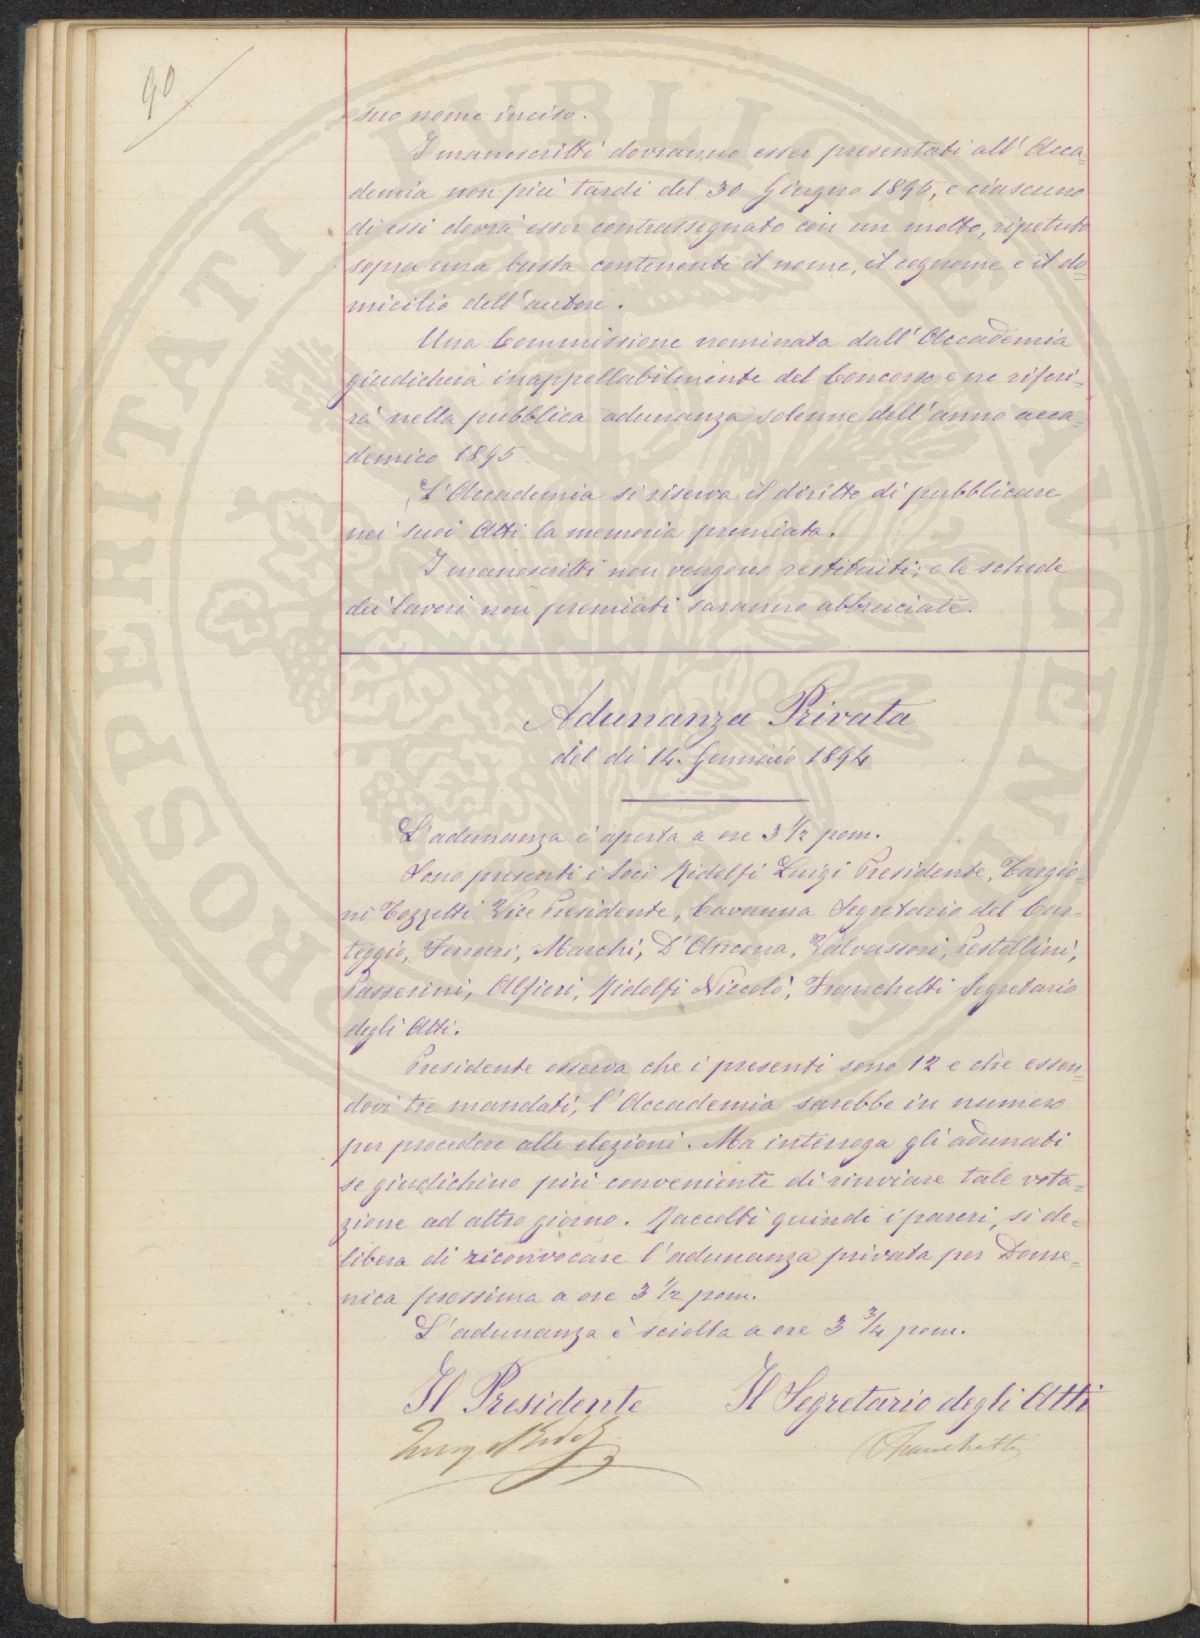 90
suo nome inciso.
I manoscritti dovranno esser presentati all'Acca-
demia non più tardi del 30 Giugno 1895, e ciascuno
di essi dovrà esser contrassegnato con un motto, ripetuto
sopra una busta contenente il nome, il cognome e il do-
micilio dell'autore.
Una Commissione nominata dall'Accademia
giudicherà inappellabilmente del Concorso e ne riferi-
rà nella pubblica adunanza solenne dell'anno acca-
demico 1895
L'Accademia si riserva il diritto di pubblicare
nei suoi Atti la memoria premiata.
I manoscritti non vengono restituiti; e le schede
dei lavori non premiati saranno abbruciate.
Adunanza Privata
del dì 14. Gennaio 1894
L'adunanza è aperta a ore 3 1/2 pom.
Sono presenti i Soci Ridolfi Luigi Presidente, Targio-
ni Tozzetti Vice Presidente, Cavanna Segretario del Car-
teggio, Ferrari, Marchi, D'Ancona, Valvassori, Pestellini,
Passerini, Alfieri, Ridolfi Niccolò, Franchetti Segretario
degli Atti.
Presidente osserva che i presenti sono 12 e che essen-
dovi tre mandati, l'Accademia sarebbe in numero
per procedere alle elezioni. Ma interroga gli adunati
se giudichino più conveniente di rinviare tale vota-
zione ad altro giorno. Raccolti quindi i pareri, si de-
libera di riconvocare l'adunanza privata per Dome-
nica prossima a ore 3 1/2 pom.
L'adunanza è sciolta a ore 3 3/4 pom.
Il Presidente Il Segretario degli Atti
Luigi Ridolfi AFranchetti
PROSPERITATI PVBLICAE AVGENDAE